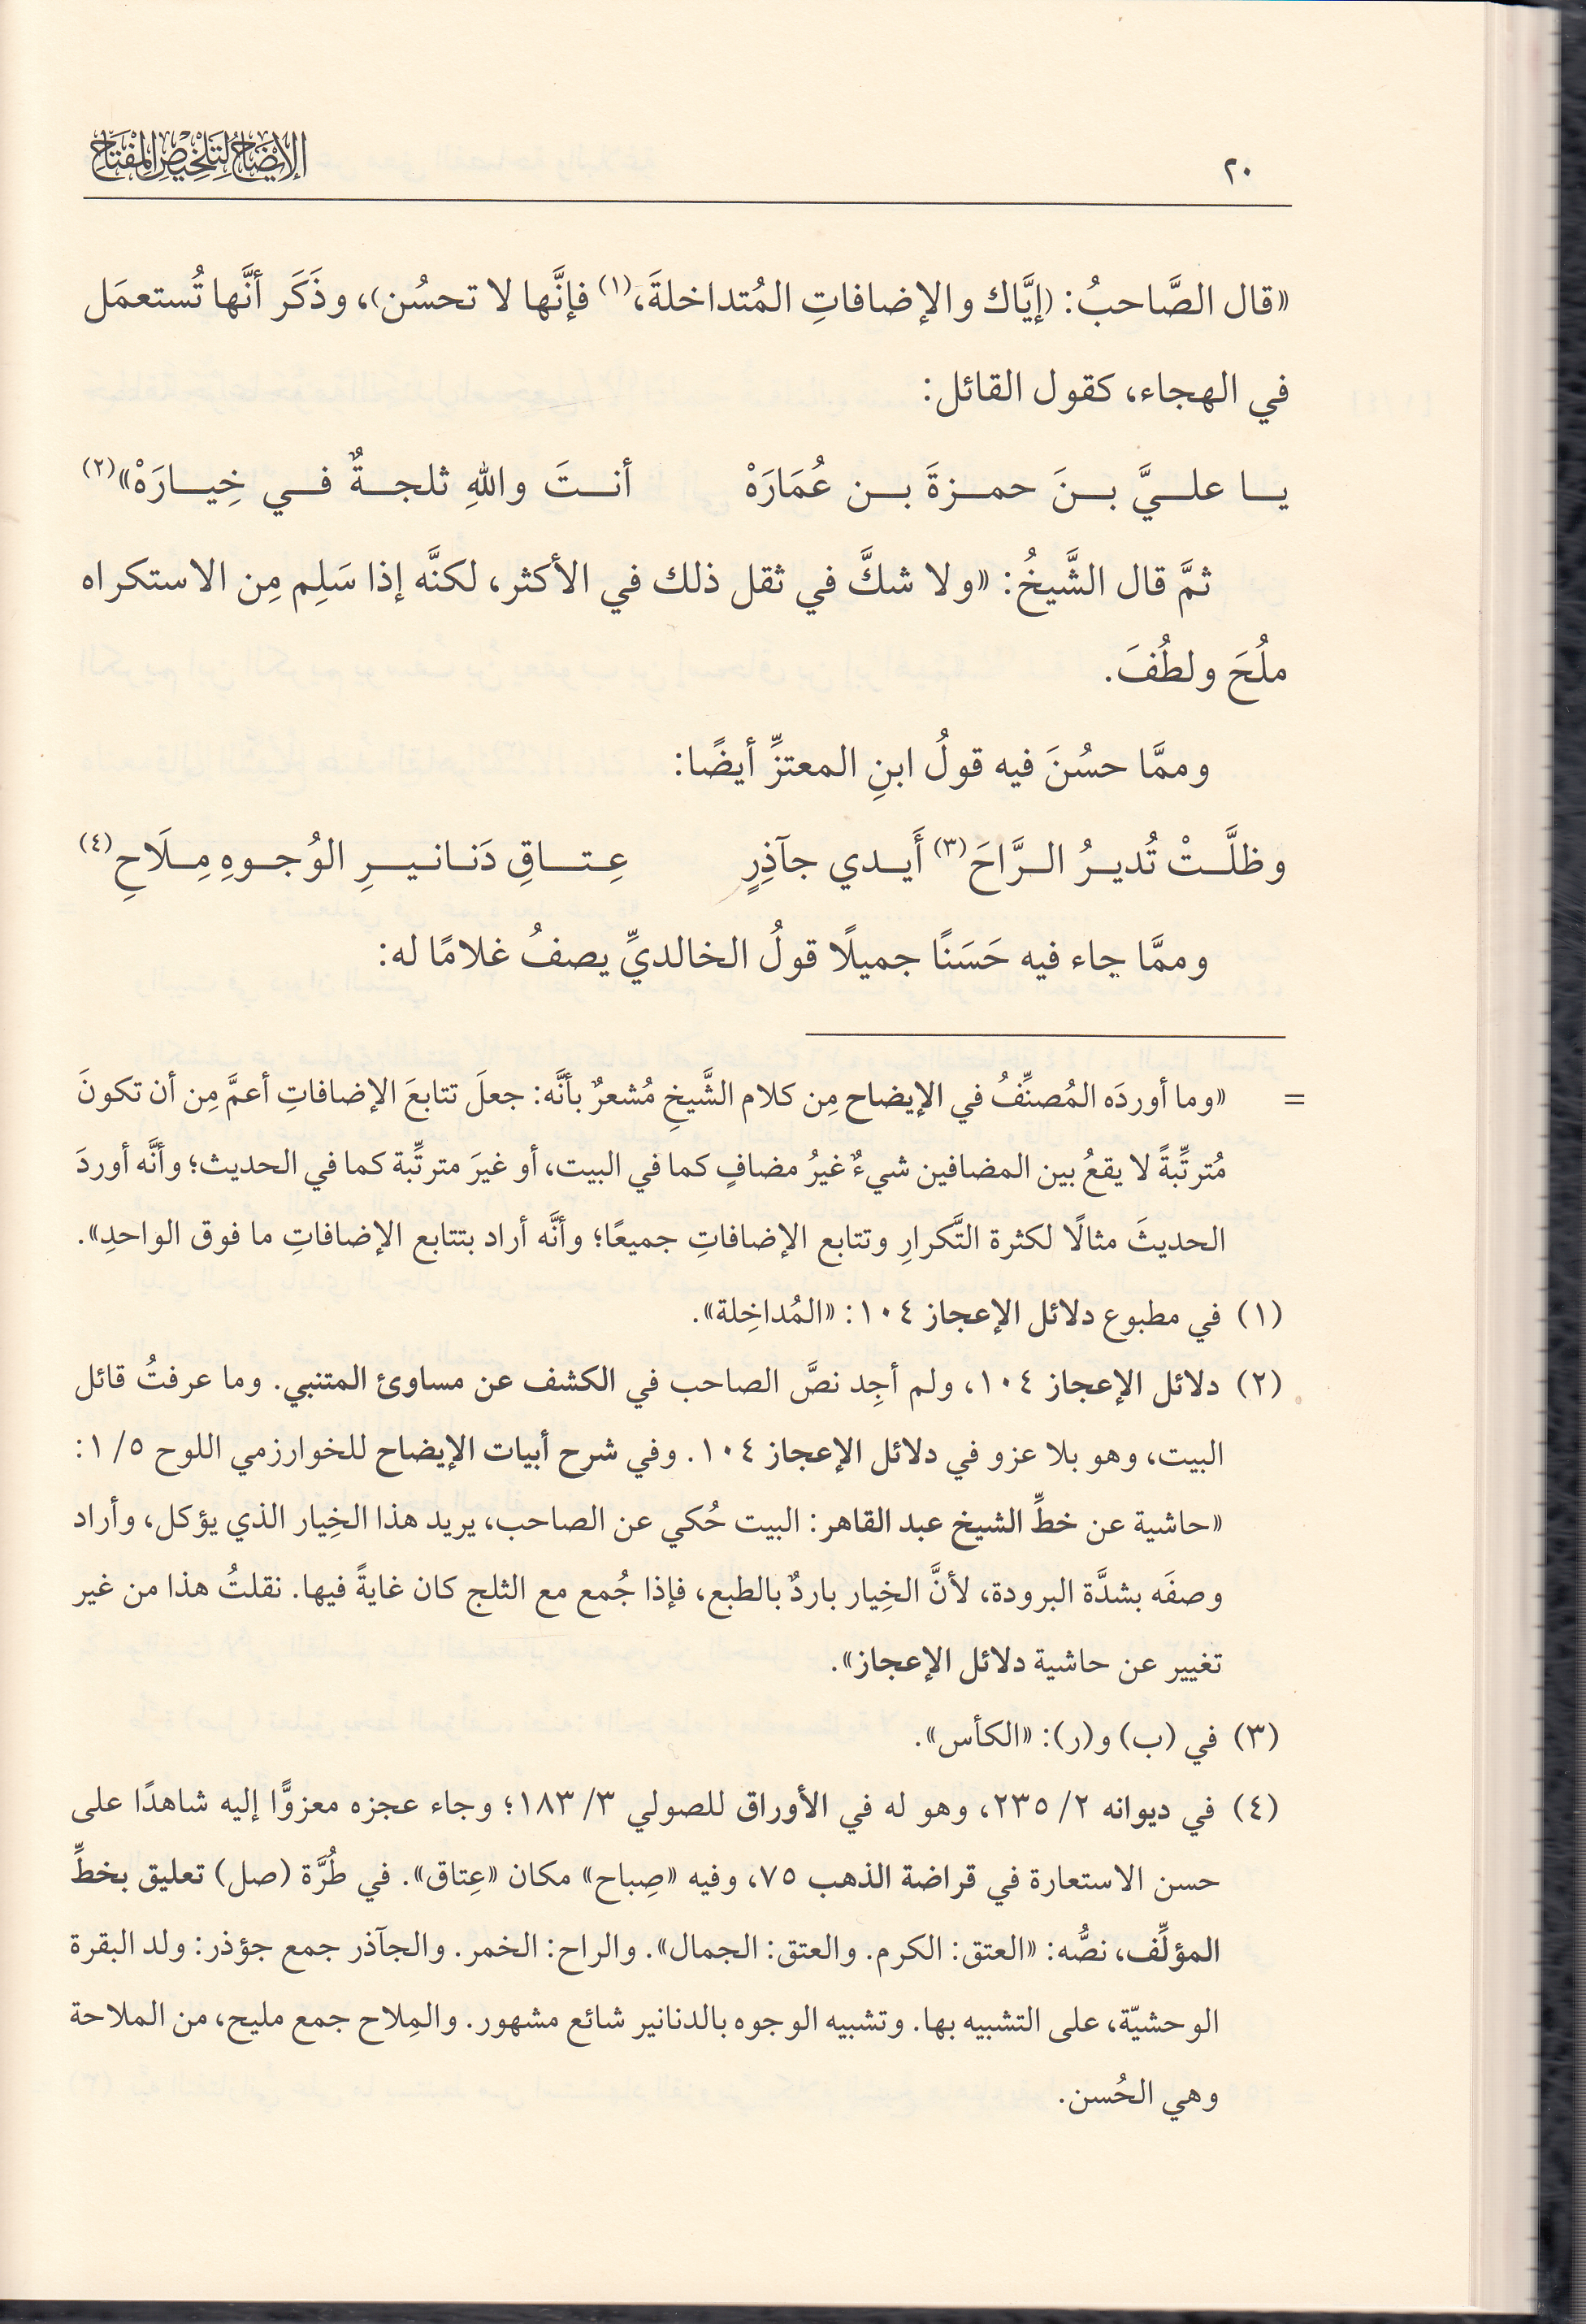 ٢٠
الإيضاح لتلخيص المفتاح
«قال الصَّاحبُ: (إيَّاك والإضافاتِ المُتداخلةَ،(١) فإنَّها لا تحسُن)، وذَكَر أنَّها تُستعمَل
في الهجاء، كقول القائل:
يا عليَّ بنَ حمزةَ بن عُمَارَهْ أنتَ واللهِ ثلجةٌ في خِيارَهْ»(٢)
ثمَّ قال الشَّيخُ: «ولا شكَّ في ثقل ذلك في الأكثر، لكنَّه إذا سَلِم مِن الاستكراه
ملُحَ ولطُفَ.
وممَّا حسُنَ فيه قولُ ابنِ المعتزِّ أيضًا:
وظلَّتْ تُديرُ الرَّاحَ(٣) أَيدي جآذِرٍ عِتاقِ دَنانيرِ الوُجوهِ مِلَاحِ(٤)
وممَّا جاء فيه حَسَنًا جميلًا قولُ الخالديِّ يصفُ غلامًا له:
= «وما أوردَه المُصنِّفُ في الإيضاح مِن كلام الشَّيخِ مُشعرٌ بأنَّه: جعلَ تتابعَ الإضافاتِ أعمَّ مِن أن تكونَ
مُترتِّبةً لا يقعُ بين المضافين شيءٌ غيرُ مضافٍ كما في البيت، أو غيرَ مترتِّبة كما في الحديث؛ وأنَّه أوردَ
الحديثَ مثالًا لكثرة التَّكرارِ وتتابع الإضافاتِ جميعًا؛ وأنَّه أراد بتتابع الإضافاتِ ما فوق الواحدِ».
(١) في مطبوع دلائل الإعجاز ١٠٤: «المُداخِلة».
(٢) دلائل الإعجاز ١٠٤، ولم أجِد نصَّ الصاحب في الكشف عن مساوئ المتنبي. وما عرفتُ قائل
البيت، وهو بلا عزو في دلائل الإعجاز ١٠٤. وفي شرح أبيات الإيضاح للخوارزمي اللوح ٥/ ١:
«حاشية عن خطِّ الشيخ عبد القاهر: البيت حُكي عن الصاحب، يريد هذا الخِيار الذي يؤكل، وأراد
وصفَه بشدَّة البرودة، لأنَّ الخِيار باردٌ بالطبع، فإذا جُمع مع الثلج كان غايةً فيها. نقلتُ هذا من غير
تغيير عن حاشية دلائل الإعجاز».
(٣) في (ب) و(ر): «الكأس».
(٤) في ديوانه ٢/ ٢٣٥، وهو له في الأوراق للصولي ٣/ ١٨٣؛ وجاء عجزه معزوًّا إليه شاهدًا على
حسن الاستعارة في قراضة الذهب ٧٥، وفيه «صِباح» مكان «عِتاق». في طُرَّة (صل) تعليق بخطِّ
المؤلِّف، نصُّه: «العتق: الكرم. والعتق: الجمال». والراح: الخمر. والجآذر جمع جؤذر: ولد البقرة
الوحشيّة، على التشبيه بها. وتشبيه الوجوه بالدنانير شائع مشهور. والمِلاح جمع مليح، من الملاحة
وهي الحُسن.